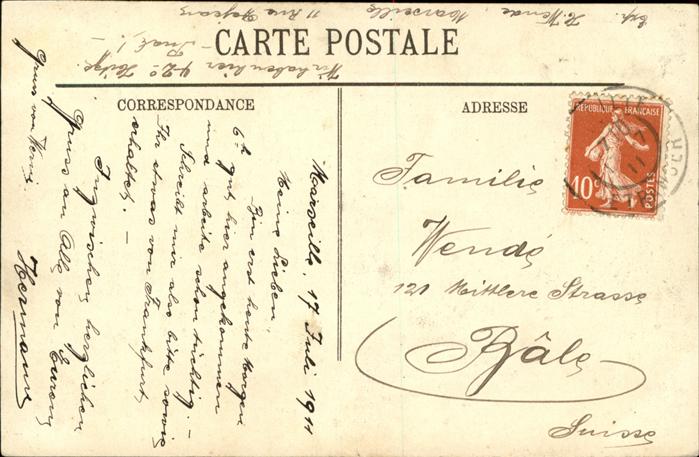 Exp. H. Wende, Marseille
11 Rue
CARTE POSTALE
Wir haben hier 42° Hitze.
– Prak! –
CORRESPONDANCE
ADRESSE
Marseille, 17 Juli 1911
Meine Lieben!
Bin erst heute Morgen
6h gut hier angekommen
und arbeite schon tüchtig. –
Schreibt mir also bitte sowie
Ihr etwas von Frankfurt
erhaltet. –
Inzwischen herzlichen
Gruss an Alle von Eurem
Hermann
Gruss von
Familie
Wende
121 Mittlere Strasse
Bâle
Suisse
REPUBLIQUE FRANÇAISE
10c
POSTES